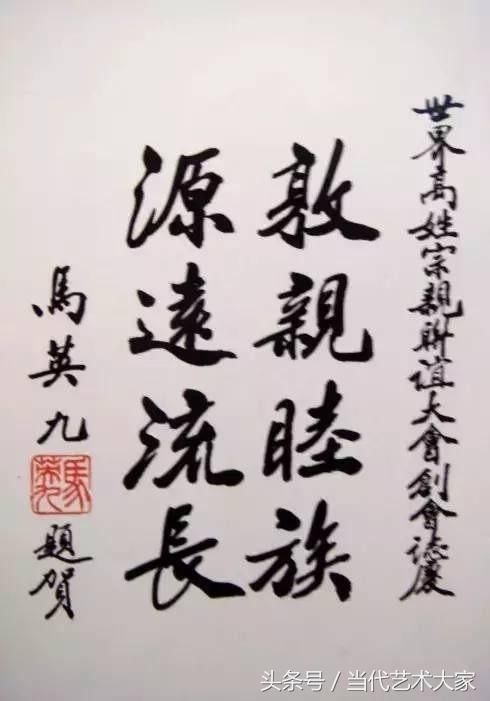 世界高姓宗親聯誼大會創會誌慶
敦親睦族
源遠流長
馬英九
題賀
头条号 / 当代艺术大家